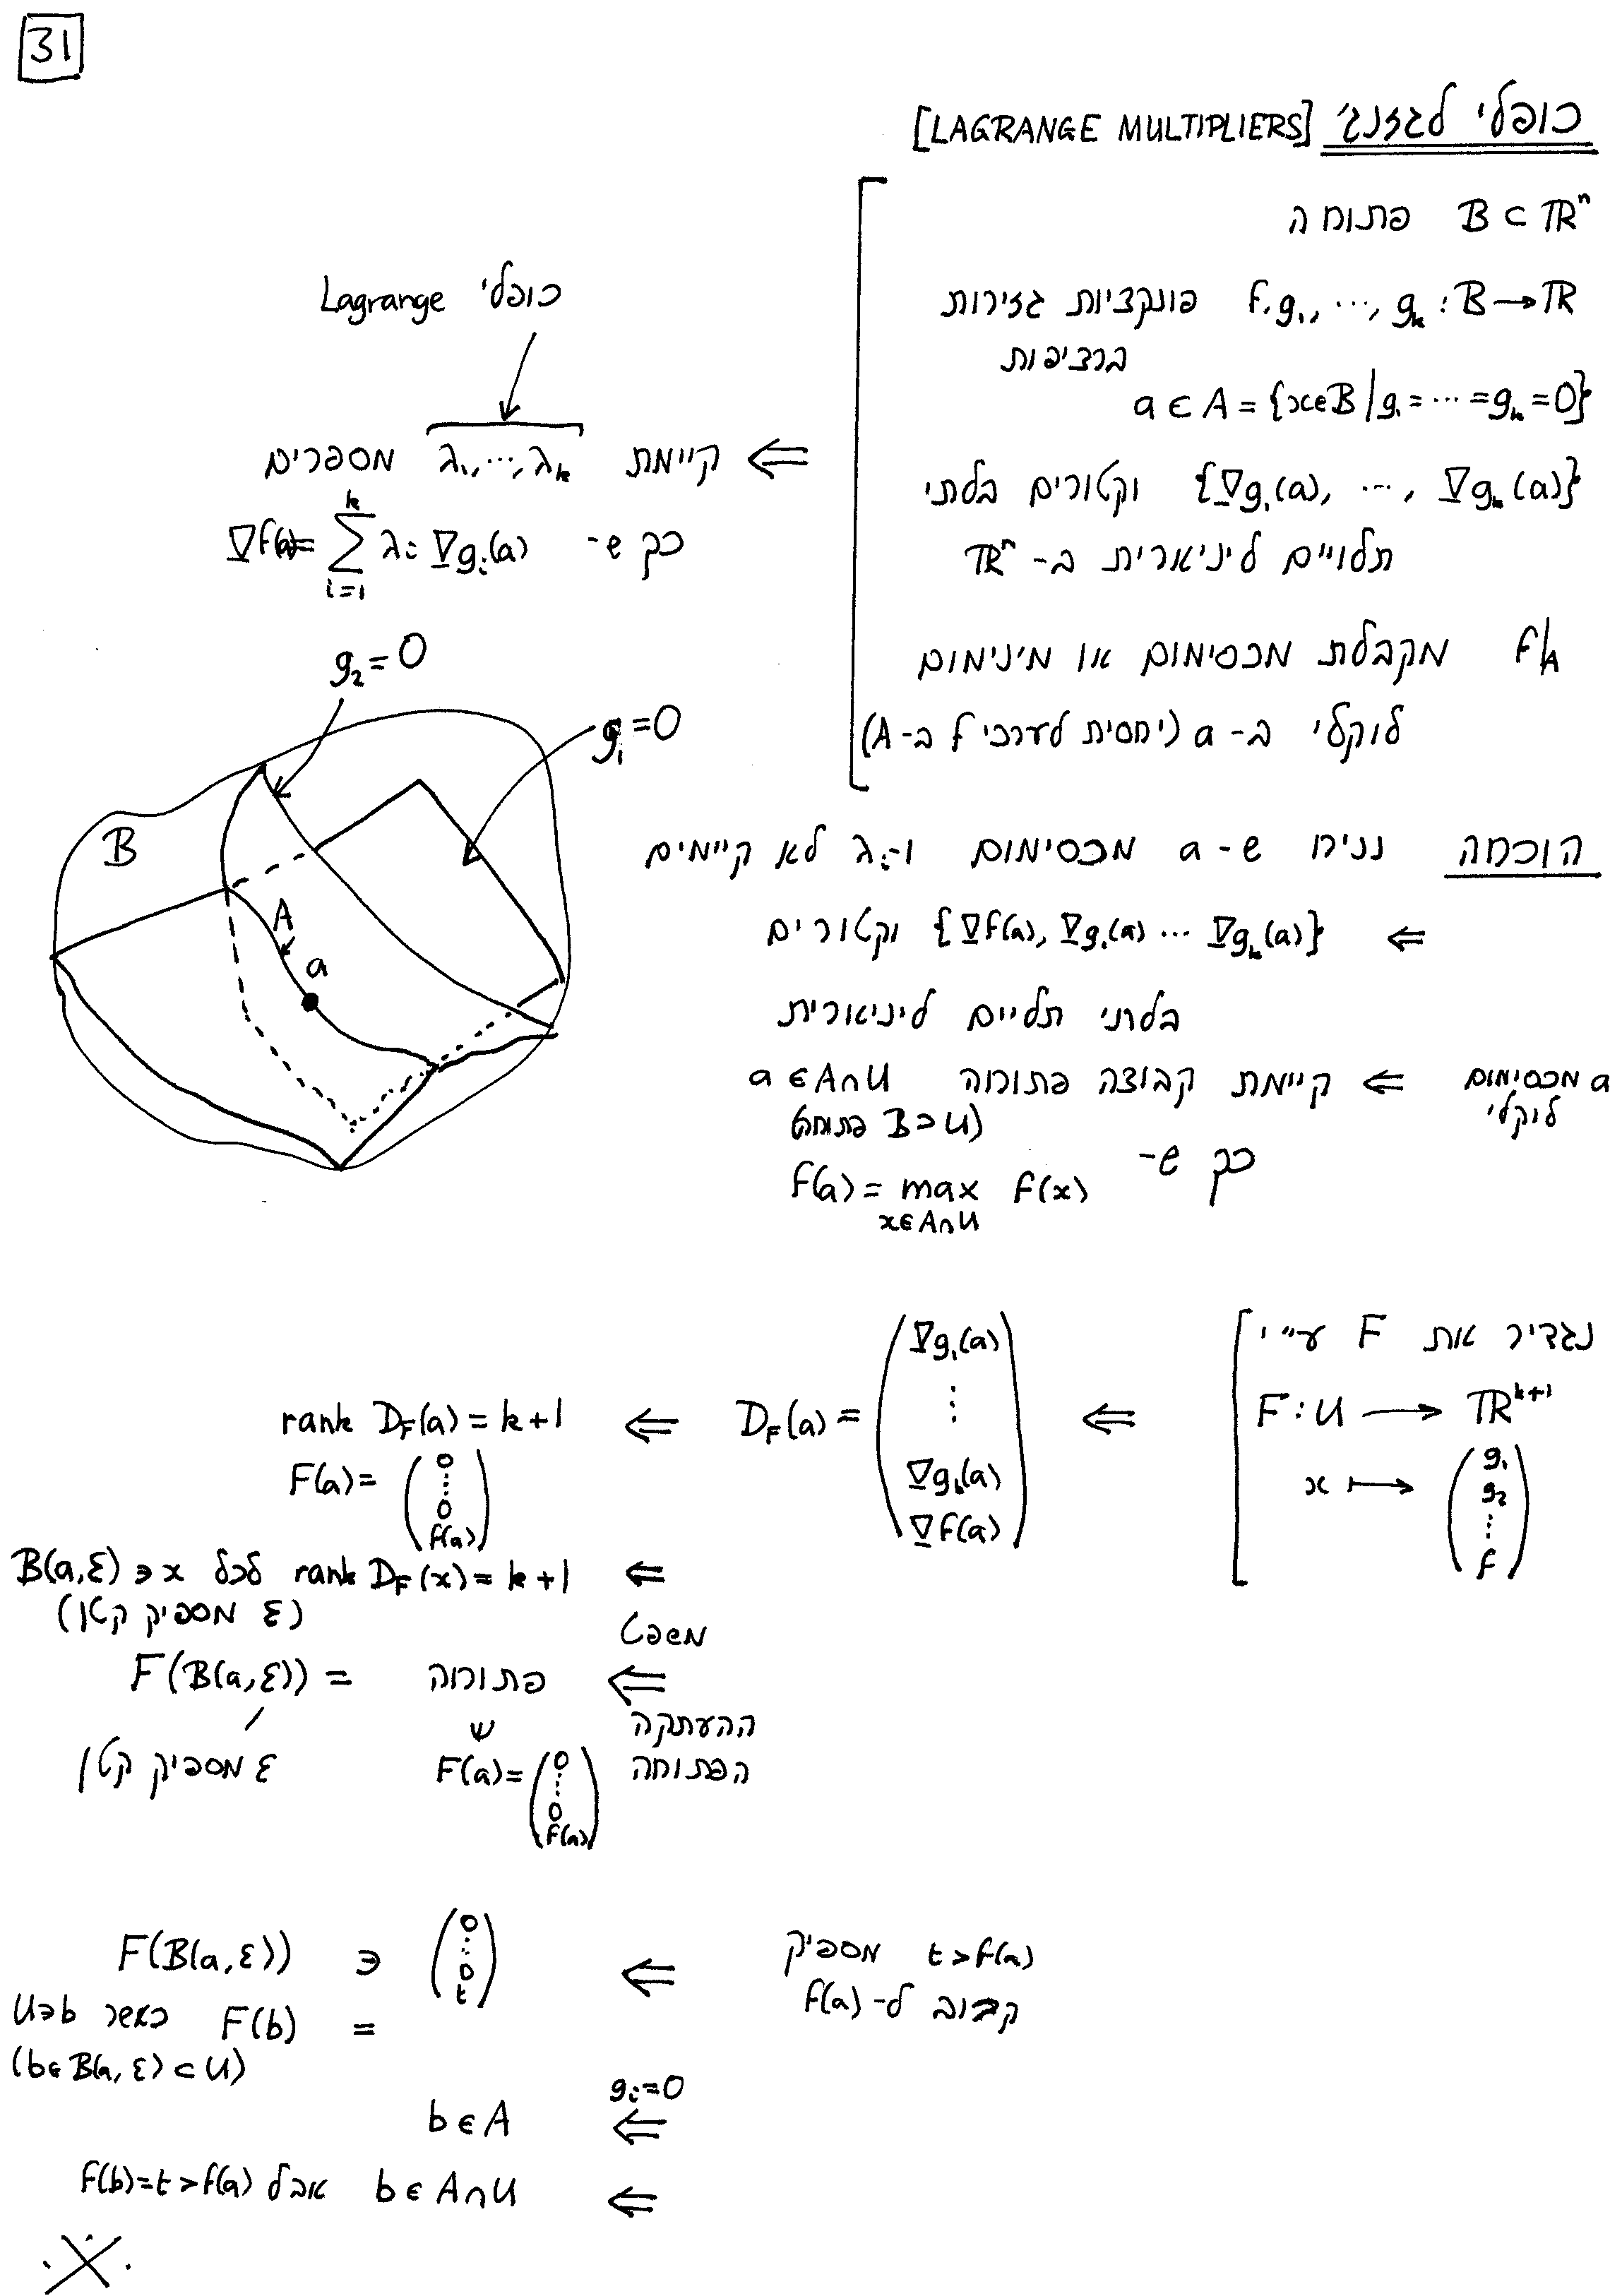 31
כופלי לגרנג' [LAGRANGE MULTIPLIERS]
B ⊂ ℝⁿ פתוחה
f, g₁, ⋯, gₖ : B → ℝ פונקציות גזירות
ברציפות
a ∈ A = {x∈B | g₁ = ⋯ = gₖ = 0}
{∇g₁(a), ⋯, ∇gₖ(a)} וקטורים בלתי
תלויים ליניארית ב- ℝⁿ
f|A מקבלת מכסימום או מינימום
לוקלי ב- a (יחסית לערכי f ב- A)
כופלי Lagrange
⇐ קיימת λ₁, ⋯, λₖ מספרים
כך ש- ∇f(a) = Σᵢ₌₁ᵏ λᵢ ∇gᵢ(a)
g₂ = 0
g₁ = 0
B
A
a
הוכחה נניח ש- a מכסימום ו- λᵢ לא קיימים
⇐ {∇f(a), ∇g₁(a) ⋯ ∇gₖ(a)} וקטורים
בלתי תליים ליניארית
a מכסימום לוקלי ⇐ קיימת קבוצה פתוחה a ∈ A∩U
(B ⊃ U פתוחה)
כך ש- f(a) = max f(x)
x∈A∩U
נגדיר את F ע"י
F : U → ℝᵏ⁺¹
x ↦ (g₁ g₂ ⋮ f)
⇐ D_F(a) = (∇g₁(a) ⋮ ∇gₖ(a) ∇f(a))
⇐ rank D_F(a) = k+1
F(a) = (0 ⋮ 0 f(a))
⇐ rank D_F(x) = k+1 לכל B(a,ε) ∋ x
(ε מספיק קטן)
משפט
⇐ פתוחה = F(B(a,ε))
ההעתקה
הפתוחה
F(a) = (0 ⋮ 0 f(a))
ε מספיק קטן
t > f(a) מספיק
קרוב ל- f(a)
⇐ (0 ⋮ 0 t) ∈ F(B(a,ε))
= F(b) כאשר b∈U
(b∈B(a,ε) ⊂ U)
gᵢ=0
⇐ b ∈ A
⇐ b ∈ A∩U אבל f(b)=t>f(a)